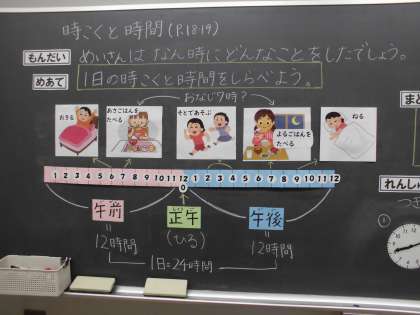 時こくと時間(P.18・19)
もんだい
めいさんは なん時にどんなことをしたでしょう。
めあて
1日の時こくと時間をしらべよう。
おなじ7時?
おきる
あさごはんを
たべる
そとであそぶ
よるごはんを
たべる
ねる
1 2 3 4 5 6 7 8 9 10 11 12 1 2 3 4 5 6 7 8 9 10 11 12
0
午前
正午
午後
(ひる)
12時間
12時間
1日=24時間
ま
れんし
つぎ
①